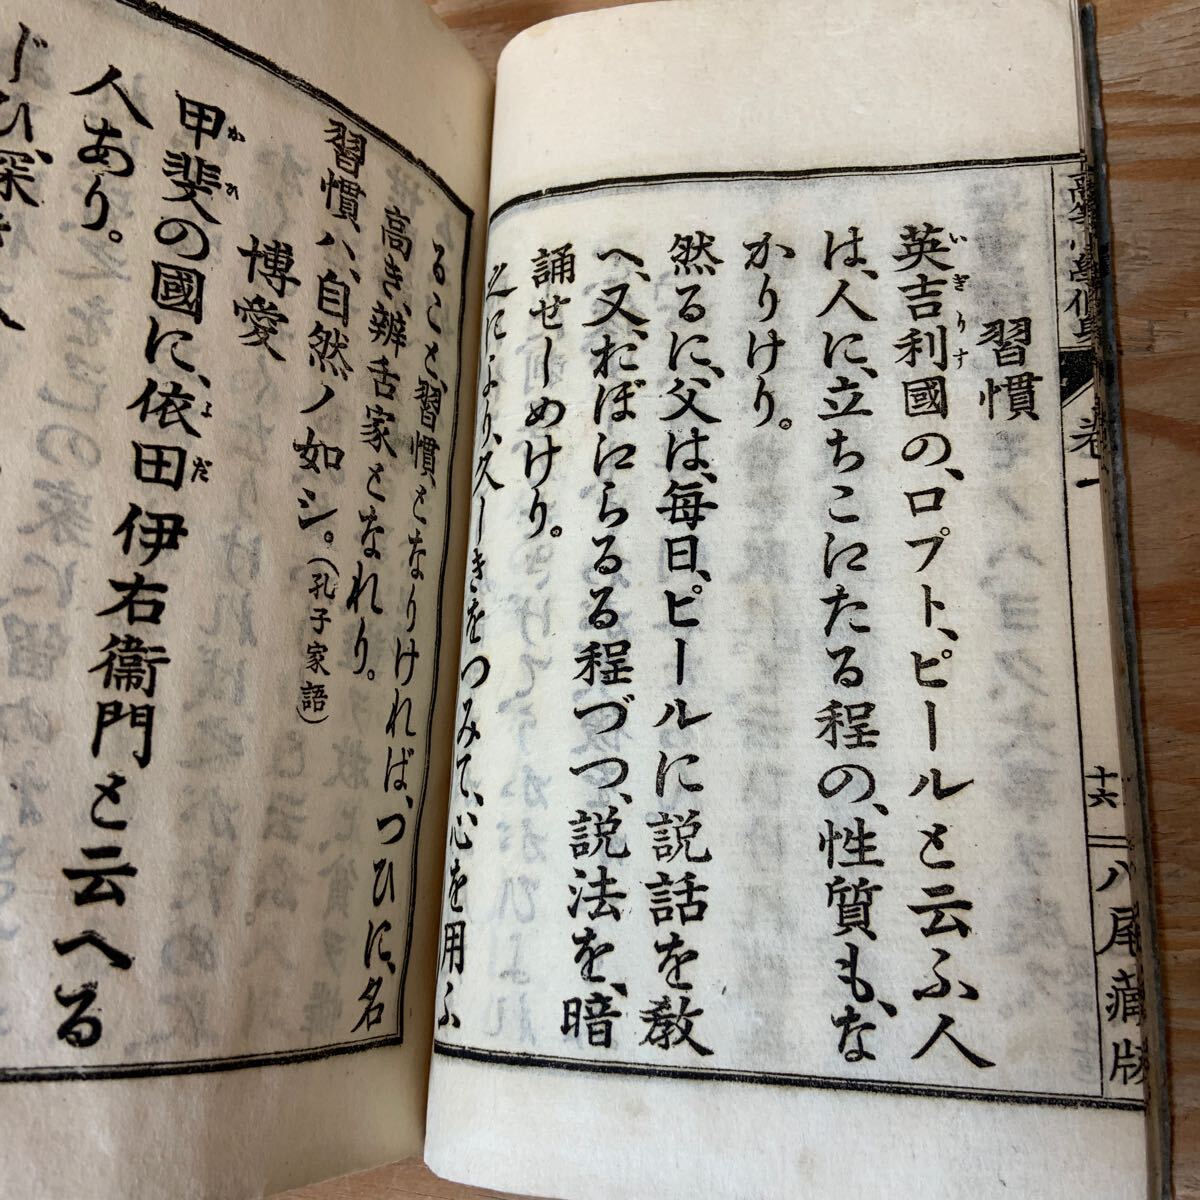 習慣
英吉利國の、ロプト、ピールと云ふ人
いぎりす
は、人に、立ちこにたる程の、性質も、な
かりけり。
然るに、父は、毎日、ピールに說話を敎
へ、又、おぼにらるる程づつ、說法を、暗
誦せしめけり。
之により、久しきをつみて、心を用ふ
ること、習慣、となりければ、つひに、名
高き、辨舌家となれり。
習慣ハ、自然ノ如シ。(孔子家語)
博愛
甲斐の國に、依田伊右衞門と云へる
かひ
よだ
人あり。
卷一
十六
八尾藏版